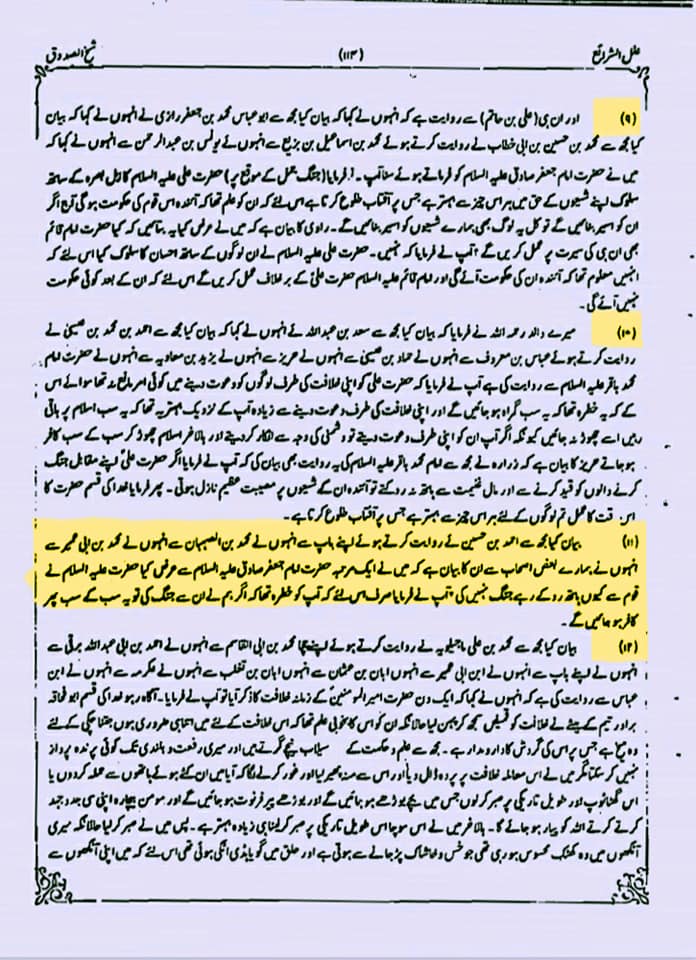 علل الشرائع (۱۱۳) شیخ الصدوق
(۹) اور ان ہی (علی بن حاتم) سے روایت ہے کہ انہوں نے کہا کہ بیان کیا مجھ سے ابو عباس محمد بن جعفر رازی نے انہوں نے کہا کہ بیان
کیا مجھ سے محمد بن حسین بن ابی خطاب نے روایت کرتے ہوئے محمد بن اسماعیل بن بزیع سے انہوں نے یونس بن عبدالرحمن سے انہوں نے کہا کہ
میں نے حضرت امام جعفر صادق علیہ السلام کو فرماتے ہوئے سنا آپ نے فرمایا (جنگ جمل کے موقع پر) حضرت علی علیہ السلام کا اہل بصرہ کے ساتھ
سلوک اپنے شیعوں کے حق میں ہر اس چیز سے بہتر ہے جس پر آفتاب طلوع کرتا ہے اس لئے کہ ان کو علم تھا کہ آئندہ اس قوم کی حکومت ہوگی آج اگر
ان کو اسیر بنائیں گے تو کل یہ لوگ بھی ہمارے شیعوں کو اسیر بنائیں گے۔ راوی کا بیان ہے کہ میں نے عرض کیا یہ بتائیں کہ کیا حضرت امام قائم
بھی ان ہی کی سیرت پر عمل کریں گے؟ آپ نے فرمایا کہ نہیں۔ حضرت علی علیہ السلام نے ان لوگوں کے ساتھ احسان کا سلوک کیا اس لئے کہ
انہیں معلوم تھا کہ آئندہ ان کی حکومت آئے گی اور امام قائم علیہ السلام حضرت علیؑ کے برخلاف عمل کریں گے اس لئے کہ ان کے بعد کوئی حکومت
نہیں آئے گی۔
(۱۰) میرے والد رحمہ اللہ نے فرمایا کہ بیان کیا مجھ سے سعد بن عبداللہ نے انہوں نے کہا کہ بیان کیا مجھ سے احمد بن محمد بن عیسیٰ نے
روایت کرتے ہوئے عباس بن معروف سے انہوں نے حماد بن عیسیٰ سے انہوں نے حریز سے انہوں نے برید بن معاویہ سے انہوں نے حضرت امام
محمد باقر علیہ السلام سے روایت کی ہے آپ نے فرمایا کہ حضرت علی کو اپنی خلافت کی طرف لوگوں کو دعوت دینے میں کوئی امر مانع نہ تھا سوائے اس
کے کہ یہ خطرہ تھا کہ یہ سب گمراہ ہو جائیں گے اور اپنی خلافت کی طرف دعوت دینے سے زیادہ آپ کے نزدیک بہتر یہ تھا کہ یہ سب اسلام پر باقی
رہیں اسے چھوڑ نہ جائیں کیونکہ اگر آپ ان کو اپنی طرف دعوت دیتے تو دشمنی کی وجہ سے انکار کردیتے اور بالآخر اسلام چھوڑ کر سب کے سب کافر
ہو جاتے حریز کا بیان ہے کہ زرارہ نے مجھ سے امام محمد باقر علیہ السلام کی یہ روایت بھی بیان کی کہ آپ نے فرمایا اگر حضرت علیؑ اپنے مقابل جنگ
کرنے والوں کو قید کرنے سے اور مال غنیمت سے ہاتھ نہ روکتے تو آئندہ ان کے شیعوں پر مصیبت عظیم نازل ہوتی۔ پھر فرمایا خدا کی قسم حضرت کا
اس وقت کا عمل تم لوگوں کے لئے ہر اس چیز سے بہتر ہے جس پر آفتاب طلوع کرتا ہے۔
(۱۱) بیان کیا مجھ سے احمد بن حسین نے روایت کرتے ہوئے اپنے باپ سے انہوں نے محمد بن ابی الصہبان سے انہوں نے محمد بن ابی عمیر سے
انہوں نے ہمارے بعض اصحاب سے ان کا بیان ہے کہ میں نے ایک مرتبہ حضرت امام جعفر صادق علیہ السلام سے عرض کیا حضرت علیہ السلام نے
قوم سے کیوں ہاتھ روکے رہے جنگ نہیں کی؟ آپ نے فرمایا صرف اس لئے کہ آپ کو خطرہ تھا کہ اگر ہم نے ان سے جنگ کی تو یہ سب کے سب پھر
کافر ہو جائیں گے۔
(۱۲) بیان کیا مجھ سے محمد بن علی ماجیلویہ نے روایت کرتے ہوئے اپنے چچا محمد بن ابی القاسم سے انہوں نے احمد بن ابی عبداللہ برقی سے
انہوں نے اپنے باپ سے انہوں نے ابن ابی عمیر سے انہوں نے ابان بن عثمان سے انہوں نے ابان بن تغلب سے انہوں نے عکرمہ سے انہوں نے ابن
عباس سے روایت کی ہے کہ انہوں نے کہا کہ ایک دن حضرت امیر المومنینؑ کے زمانہ خلافت کا ذکر آیا تو آپ نے فرمایا۔ آگاہ رہو خدا کی قسم ابو قحافہ
برادر تیم کے بیٹے نے خلافت کو قمیض سمجھ کر پہن لیا حالانکہ ان کو اس کا بخوبی علم تھا کہ اس خلافت کے لئے میں انتہائی ضروری ہوں جتنا چکی کے لئے
وہ میخ ہے جس پر اس کی گردش کا دارومدار ہے۔ مجھ سے علم و حکمت کے سیلاب نیچے گرتے ہیں اور میری رفعت و بلندی تک کوئی پرندہ پرواز
نہیں کر سکتا مگر میں نے اس معاملہ خلافت پر پردہ ڈال دیا اور اس سے منہ پھیر لیا اور غور کرنے لگا کہ آیا میں ان کٹے ہوئے ہاتھوں سے حملہ کردوں یا
اس گھٹاٹوپ اور طویل تاریکی پر صبر کرلوں جس میں بچے بوڑھے ہو جائیں گے اور بوڑھے پیر فرتوت ہو جائیں گے اور مومن بیچارہ اپنی سی جدوجہد
کرتے کرتے اللہ کو پیارا ہو جائے گا۔ بالآخر میں نے اس سوچا اس طویل تاریکی پر صبر کرلینا ہی زیادہ بہتر ہے۔ پس میں نے صبر کرلیا حالانکہ میری
آنکھوں میں وہ کھٹک محسوس ہو رہی تھی جو خس و خاشاک پڑ جانے سے ہوتی ہے اور حلق میں گویا ہڈی اٹکی ہوئی تھی اس لئے کہ میں اپنی آنکھوں سے